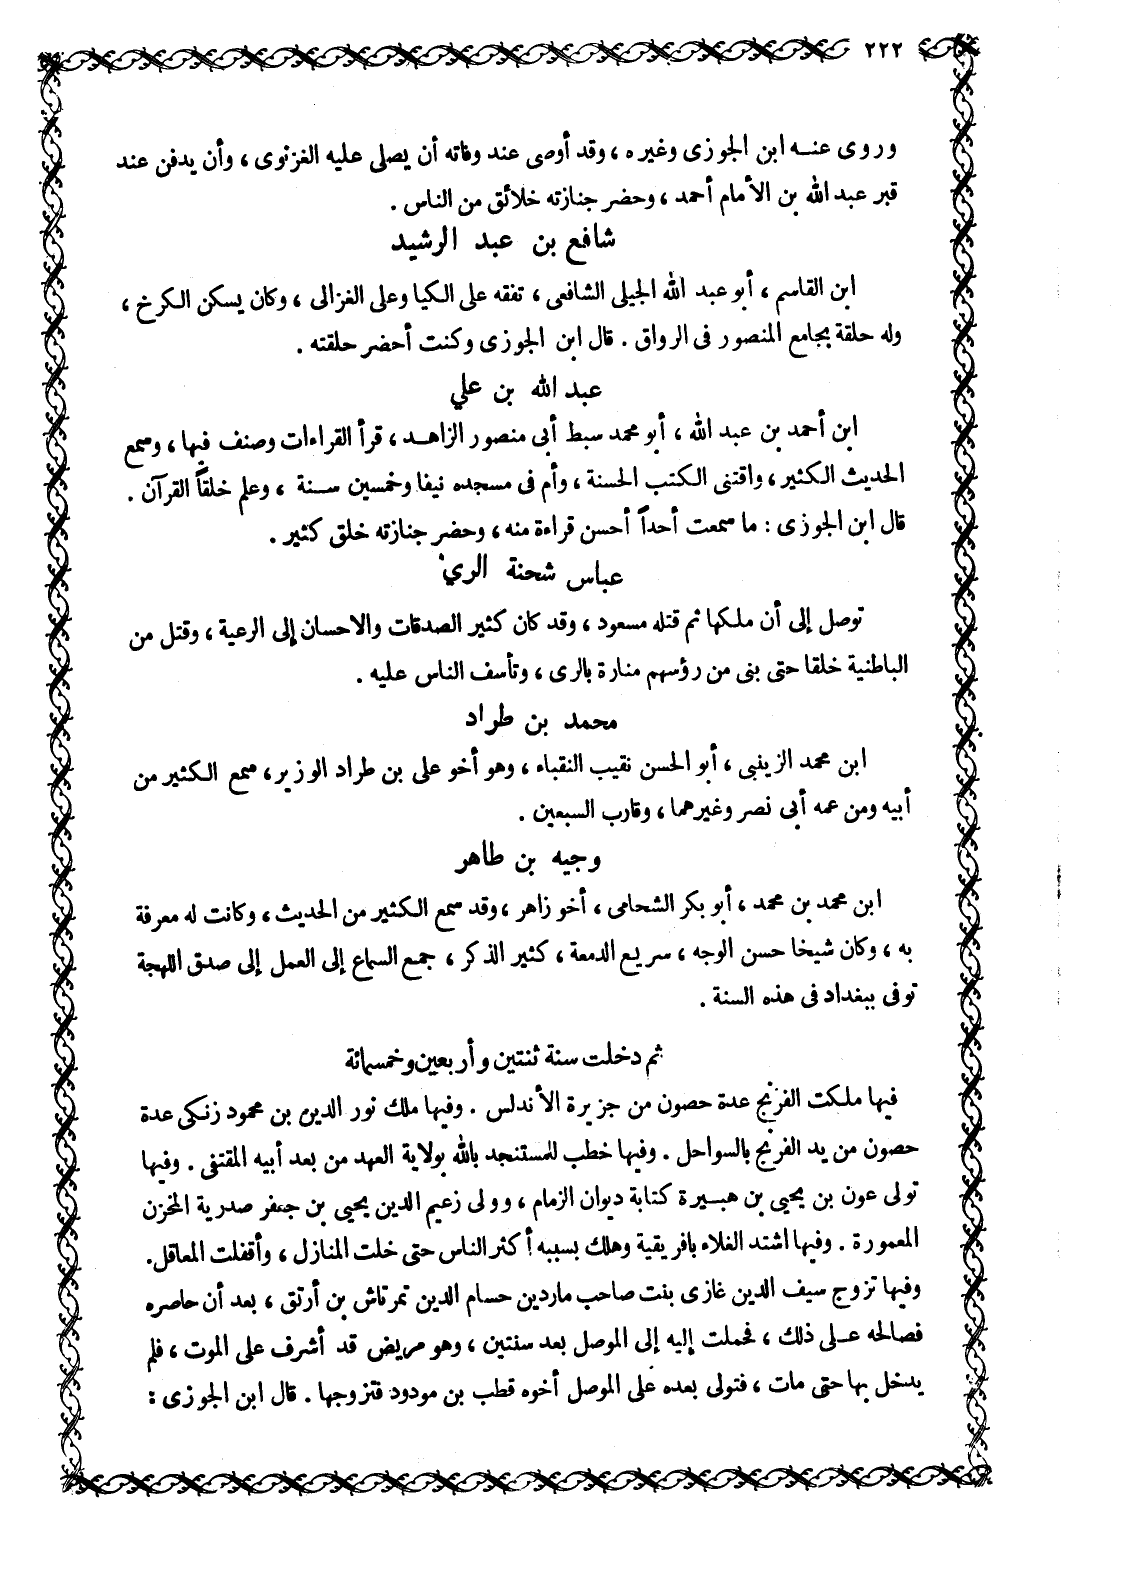 ٢٢٢
وروى عنه ابن الجوزى وغيره ، وقد أوصى عند وفاته أن يصلى عليه الغزنوى ، وأن يدفن عند
قبر عبد الله بن الأمام أحمد ، وحضر جنازته خلائق من الناس .
شافع بن عبد الرشيد
ابن القاسم ، أبو عبد الله الجيلى الشافعى ، تفقه على الكيا وعلى الغزالى ، وكان يسكن الكرخ ،
وله حلقة بجامع المنصور فى الرواق . قال ابن الجوزى وكنت أحضر حلقته .
عبد الله بن علي
ابن أحمد بن عبد الله ، أبو محمد سبط أبى منصور الزاهد ، قرأ القراءات وصنف فيها ، وسمع
الحديث الكثير ، واقتنى الكتب الحسنة ، وأم فى مسجده نيفا وخمسين سنة ، وعلم خلقاً القرآن .
قال ابن الجوزى : ما سمعت أحداً أحسن قراءة منه ، وحضر جنازته خلق كثير .
عباس شحنة الري
توصل إلى أن ملكها ثم قتله مسعود ، وقد كان كثير الصدقات والاحسان إلى الرعية ، وقتل من
الباطنية خلقا حتى بنى من رؤسهم منارة بالرى ، وتأسف الناس عليه .
محمد بن طراد
ابن محمد الزينبى ، أبو الحسن نقيب النقباء ، وهو أخو على بن طراد الوزير ، سمع الكثير من
أبيه ومن عمه أبى نصر وغيرهما ، وقارب السبعين .
وجيه بن طاهر
ابن محمد بن محمد ، أبو بكر الشحامى ، أخو زاهر ، وقد سمع الكثير من الحديث ، وكانت له معرفة
به ، وكان شيخا حسن الوجه ، سريع الدمعة ، كثير الذكر ، جمع السماع إلى العمل إلى صدق اللهجة
توفى ببغداد فى هذه السنة .
ثم دخلت سنة ثنتين وأربعين وخمسمائة
فيها ملكت الفرنج عدة حصون من جزيرة الأندلس . وفيها ملك نور الدين بن محمود زنكى عدة
حصون من يد الفرنج بالسواحل . وفيها خطب للمستنجد بالله بولاية العهد من بعد أبيه المقتفى . وفيها
تولى عون بن يحيى بن هبيرة كتابة ديوان الزمام ، وولى زعيم الدين يحيى بن جعفر صدرية المخزن
المعمورة . وفيها اشتد الغلاء بافريقية وهلك بسببه أكثر الناس حتى خلت المنازل ، وأقفلت المعاقل.
وفيها تزوج سيف الدين غازى بنت صاحب ماردين حسام الدين تمرتاش بن أرتق ، بعد أن حاصره
فصالحه على ذلك ، فحملت إليه إلى الموصل بعد سنتين ، وهو مريض قد أشرف على الموت ، فلم
يدخل بها حتى مات ، فتولى بعده على الموصل أخوه قطب بن مودود فتزوجها . قال ابن الجوزى :